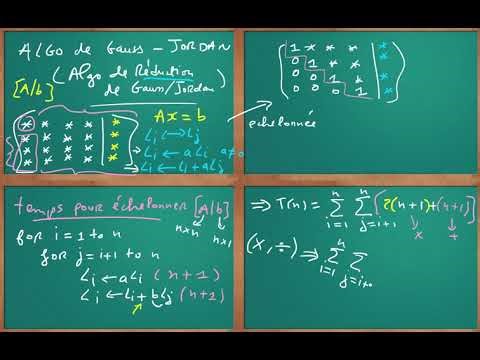 ALGO de Gauss – JORDAN
( Algo de Réduction
de Gauss/Jordan )
[A|b]
Ax = b
* * * * | *
* * * * | *
* * * * | *
* * * * | *
Li ↔ Lj
Li ← aLi a≠0
Li ← Li + aLj
1 * * * | *
0 1 * * | *
0 0 1 * | *
0 0 0 1 | *
echelonnée
temps pour échelonner [A|b]
n×n n×1
for i = 1 to n
for j = i+1 to n
Li ← aLi (n+1)
Li ← Li + bLj (n+1)
⇒ T(n) = n∑i=1 n∑j=i+1 [2(n+1)+(n+1)]
× +
(X, ÷) ⇒ n∑i=1 ∑j=i+